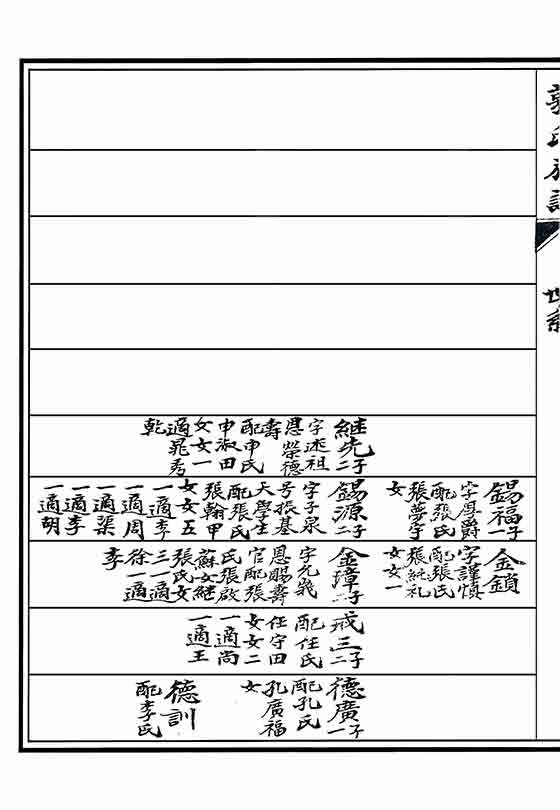 郭氏族譜
世系
継先子二
字述祖
恩榮德
壽
配申氏
申淑田
女女一
適晁秀
乾
錫福子一
字厚爵
配張氏
張夢孚
女
錫源子二
字子泉
号振基
大學生
配張氏
張翰甲
女女五
一適
一適周
一適渠
一適李
一適胡
金鎖
字謹慎
配張氏
張純礼
女女一
金璋子一
字允哉
恩賜壽
官配張
氏張啟
蘇女継
張氏女
三一適
徐一適
李
戒三子二
配任氏
任守田
女女二
一適尚
一適王
德廣子一
配孔氏
孔廣福
女
德訓
配李氏